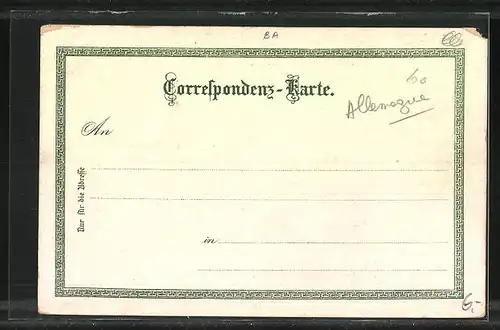 BA
Correspondenz-Karte.
60
Allemagne
An
Nur für die Adresse
in
6,-